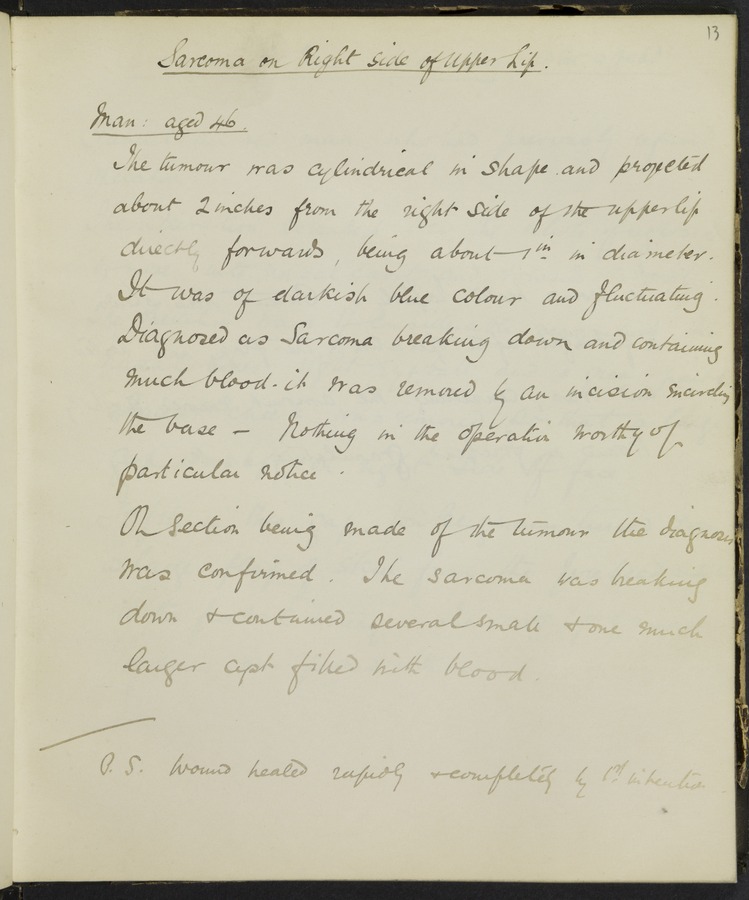 13
Sarcoma on Right side of Upper Lip.
Man: aged 46.
The tumour was cylindrical in shape and projected
about 2 inches from the right side of the upper lip
directly forwards, being about 1 in in diameter.
It was of darkish blue colour and fluctuating.
Diagnosed as Sarcoma breaking down and containing
much blood. it was removed by an incision encircling
the base — Nothing in the operation worthy of
particular notice.
On section being made of the tumour the diagnosis
was confirmed. The sarcoma was breaking
down & contained several small & one much
larger cyst filled with blood.
P.S. Wound healed rapidly & completely by 1st intention.